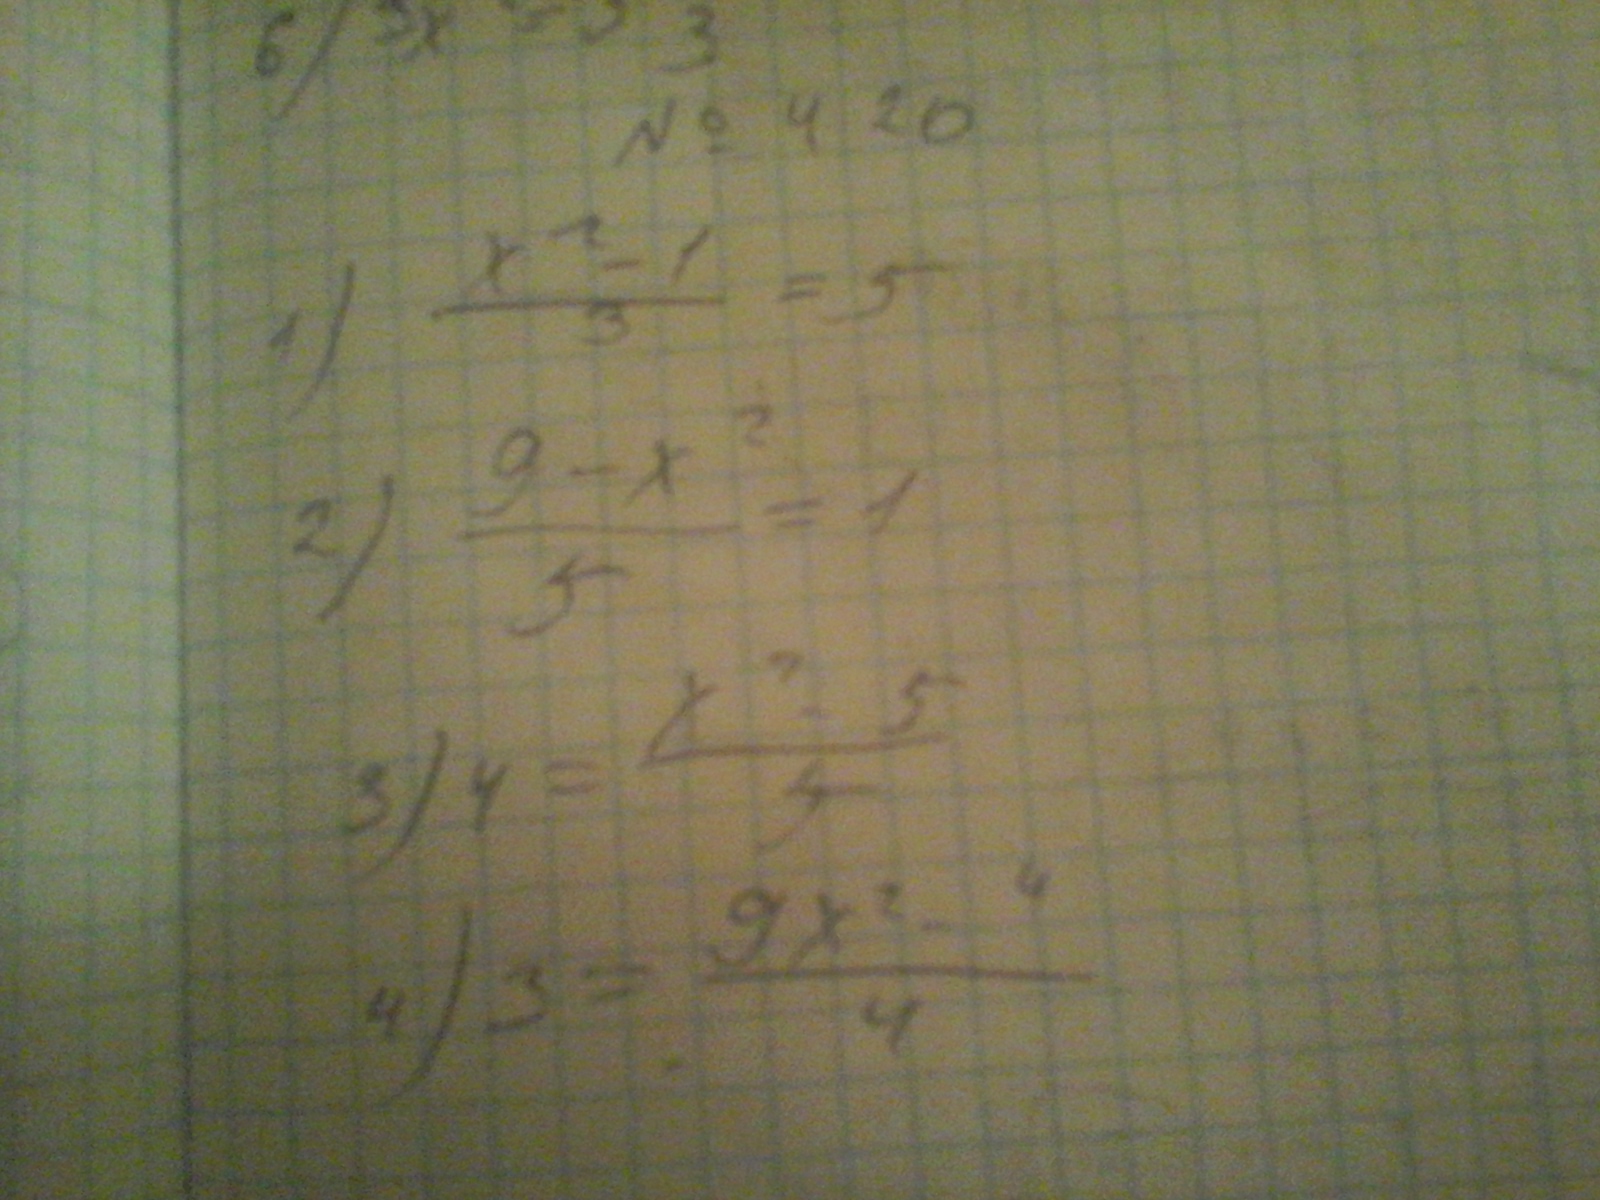 6) 3x² = 5 3
№ 420
1) x² - 1 / 3 = 5
2) 9 - x² / 5 = 1
3) 4 = x² - 5 / 5
4) 3 = 9x² - 4 / 4